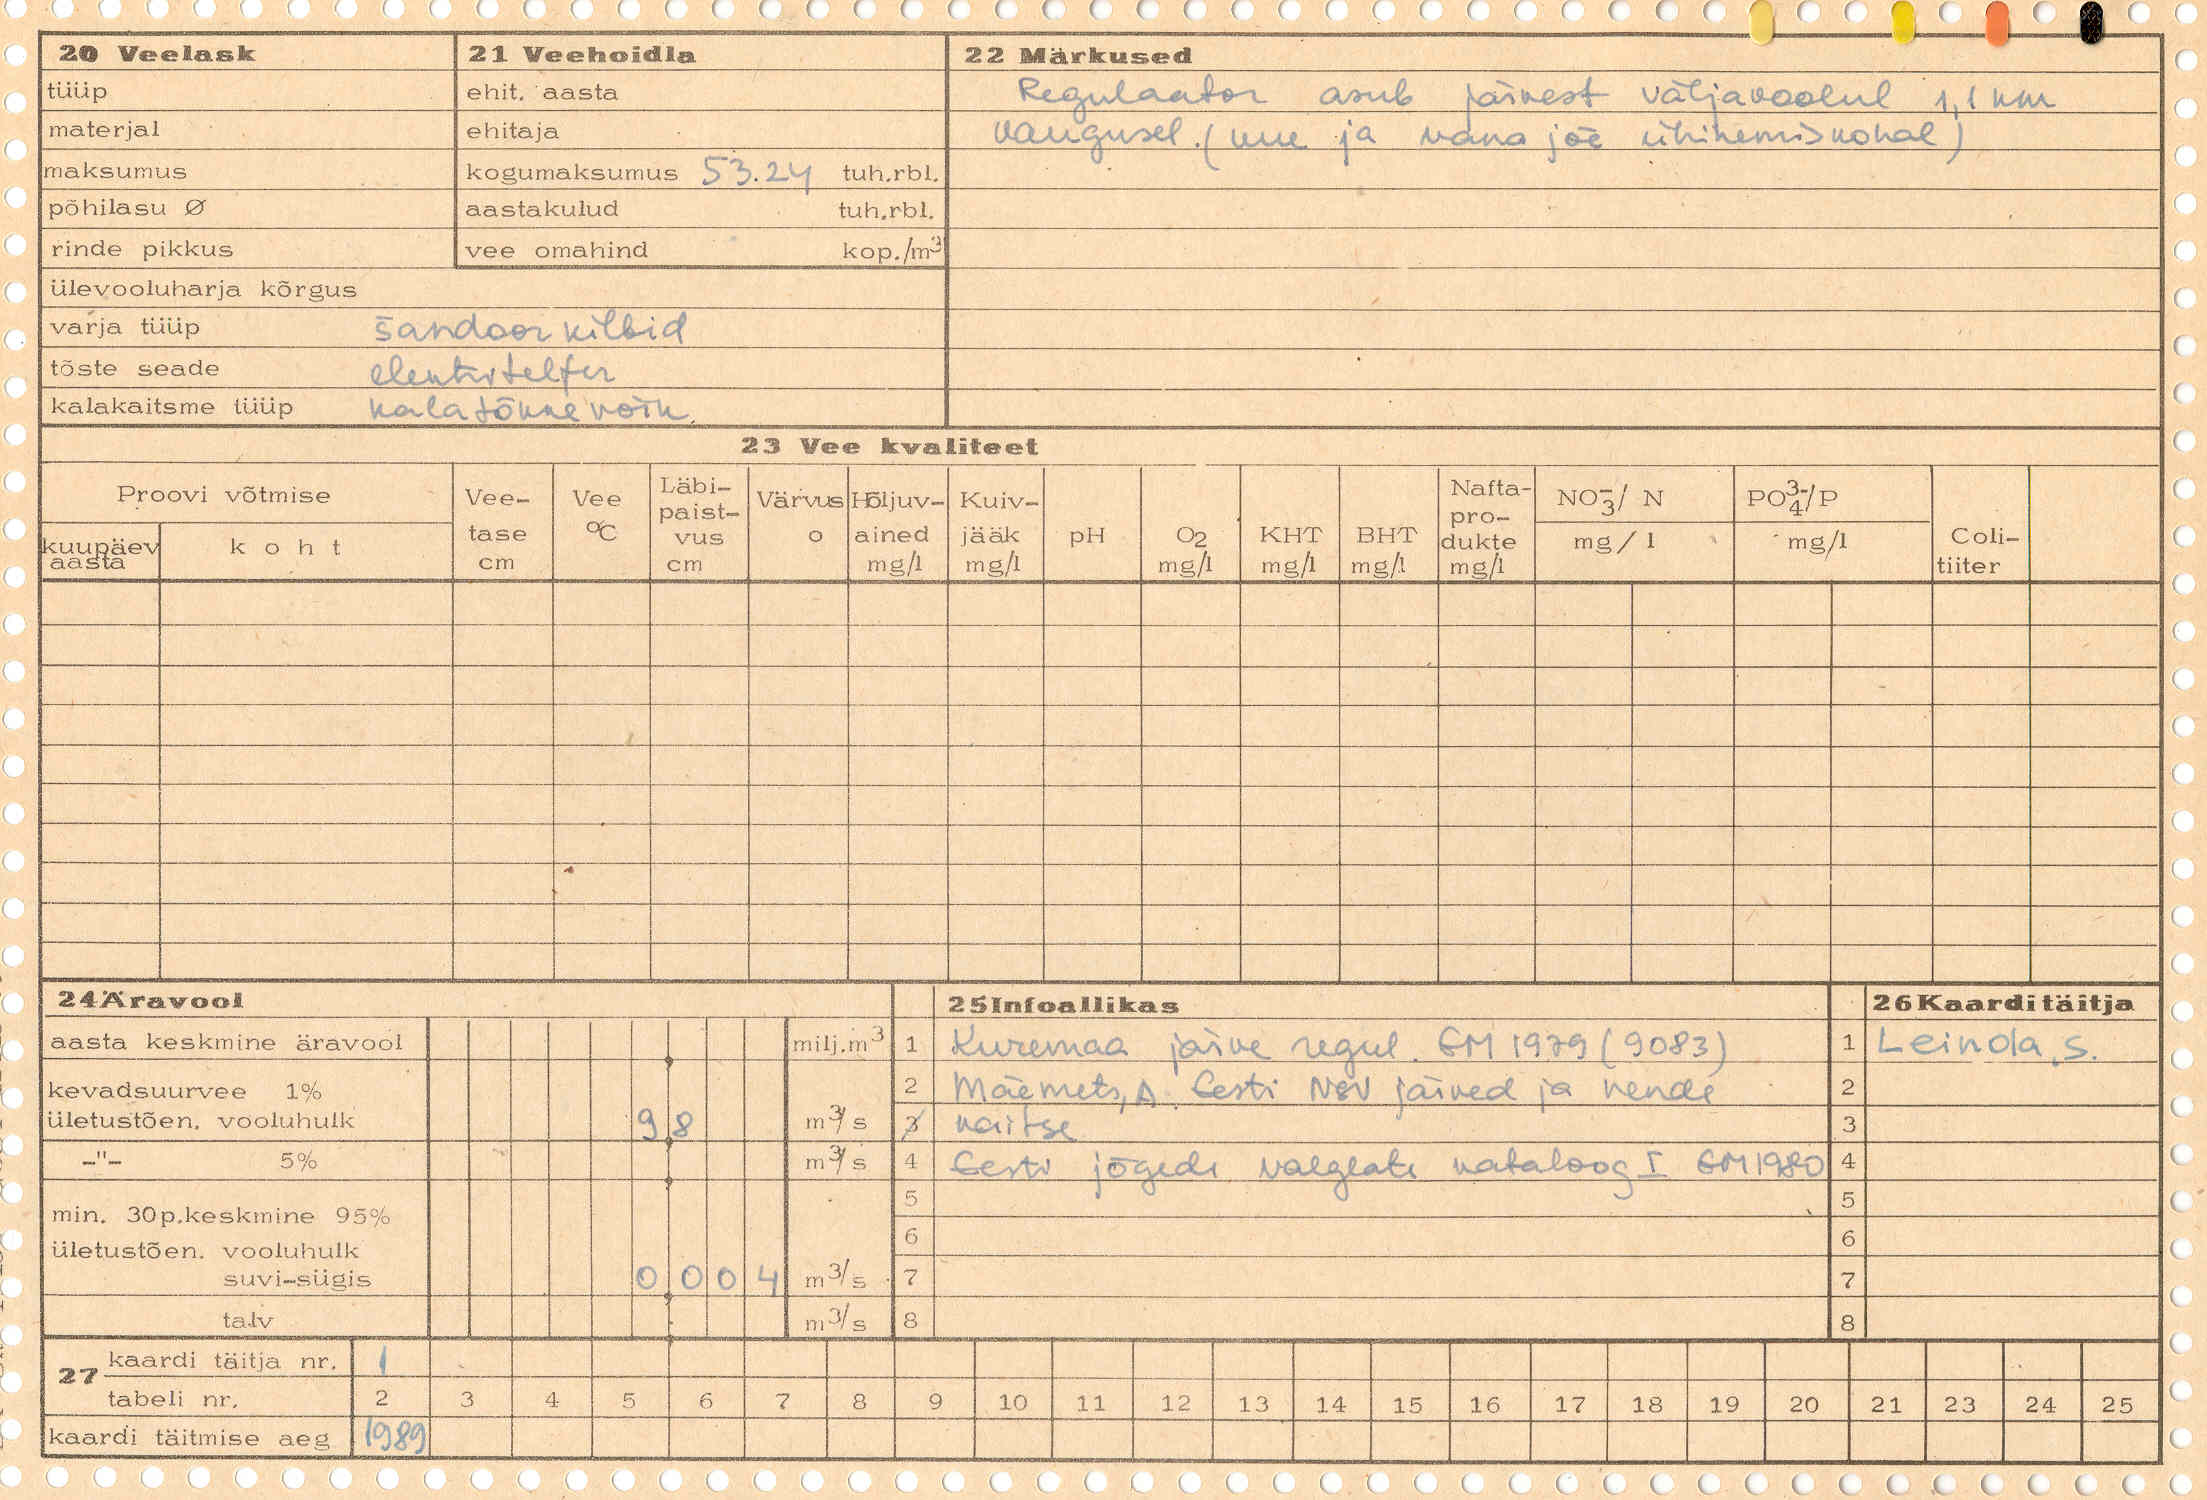 20 Veelask
tüüp
materjal
maksumus
põhilasu Ø
rinde pikkus
ülevooluharja kõrgus
varja tüüp šandoor kilbid
tõste seade elektritelfer
kalakaitsme tüüp kalatõkkevõrk
21 Veehoidla
ehit. aasta
ehitaja
kogumaksumus 53.24 tuh.rbl.
aastakulud tuh.rbl.
vee omahind kop./m³
22 Märkused
Regulaator asub järvest väljavoolul 1,1 km
kaugusel. (uue ja vana jõe ühinemiskohal)
23 Vee kvaliteet
Proovi võtmise
kuupäev
aasta
koht
Vee-
tase
cm
Vee
°C
Läbi-
paist-
vus
cm
Värvus
o
Hõljuv-
ained
mg/l
Kuiv-
jääk
mg/l
pH
O2
mg/l
KHT
mg/l
BHT
mg/l
Nafta-
pro-
dukte
mg/l
NO₃⁻/ N
mg/l
PO₄³⁻/P
mg/l
Coli-
tiiter
24 Äravool
aasta keskmine äravool milj.m³
kevadsuurvee 1%
ületustõen. vooluhulk 9 8 m³/s
-"- 5% m³/s
min. 30p.keskmine 95%
ületustõen. vooluhulk
suvi-sügis 0 0 0 4 m³/s
talv m³/s
25 Infoallikas
1 Kuremaa järve regul. EM 1979 (9083)
2 Mäemets, A. Eesti NSV järved ja nende
3 kaitse
4 Eesti jõgede valglate kataloog I EM 1980
5
6
7
8
26 Kaarditäitja
1 Leinola, S.
2
3
4
5
6
7
8
27 kaardi täitja nr. 1
tabeli nr. 2 3 4 5 6 7 8 9 10 11 12 13 14 15 16 17 18 19 20 21 23 24 25
kaardi täitmise aeg 1989